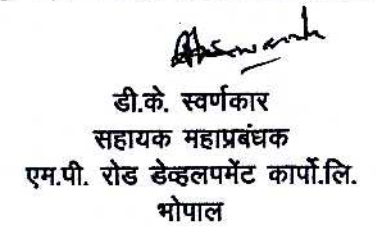 डी.के. स्वर्णकार
सहायक महाप्रबंधक
एम.पी. रोड डेव्हलपमेंट कार्पो.लि.
भोपाल